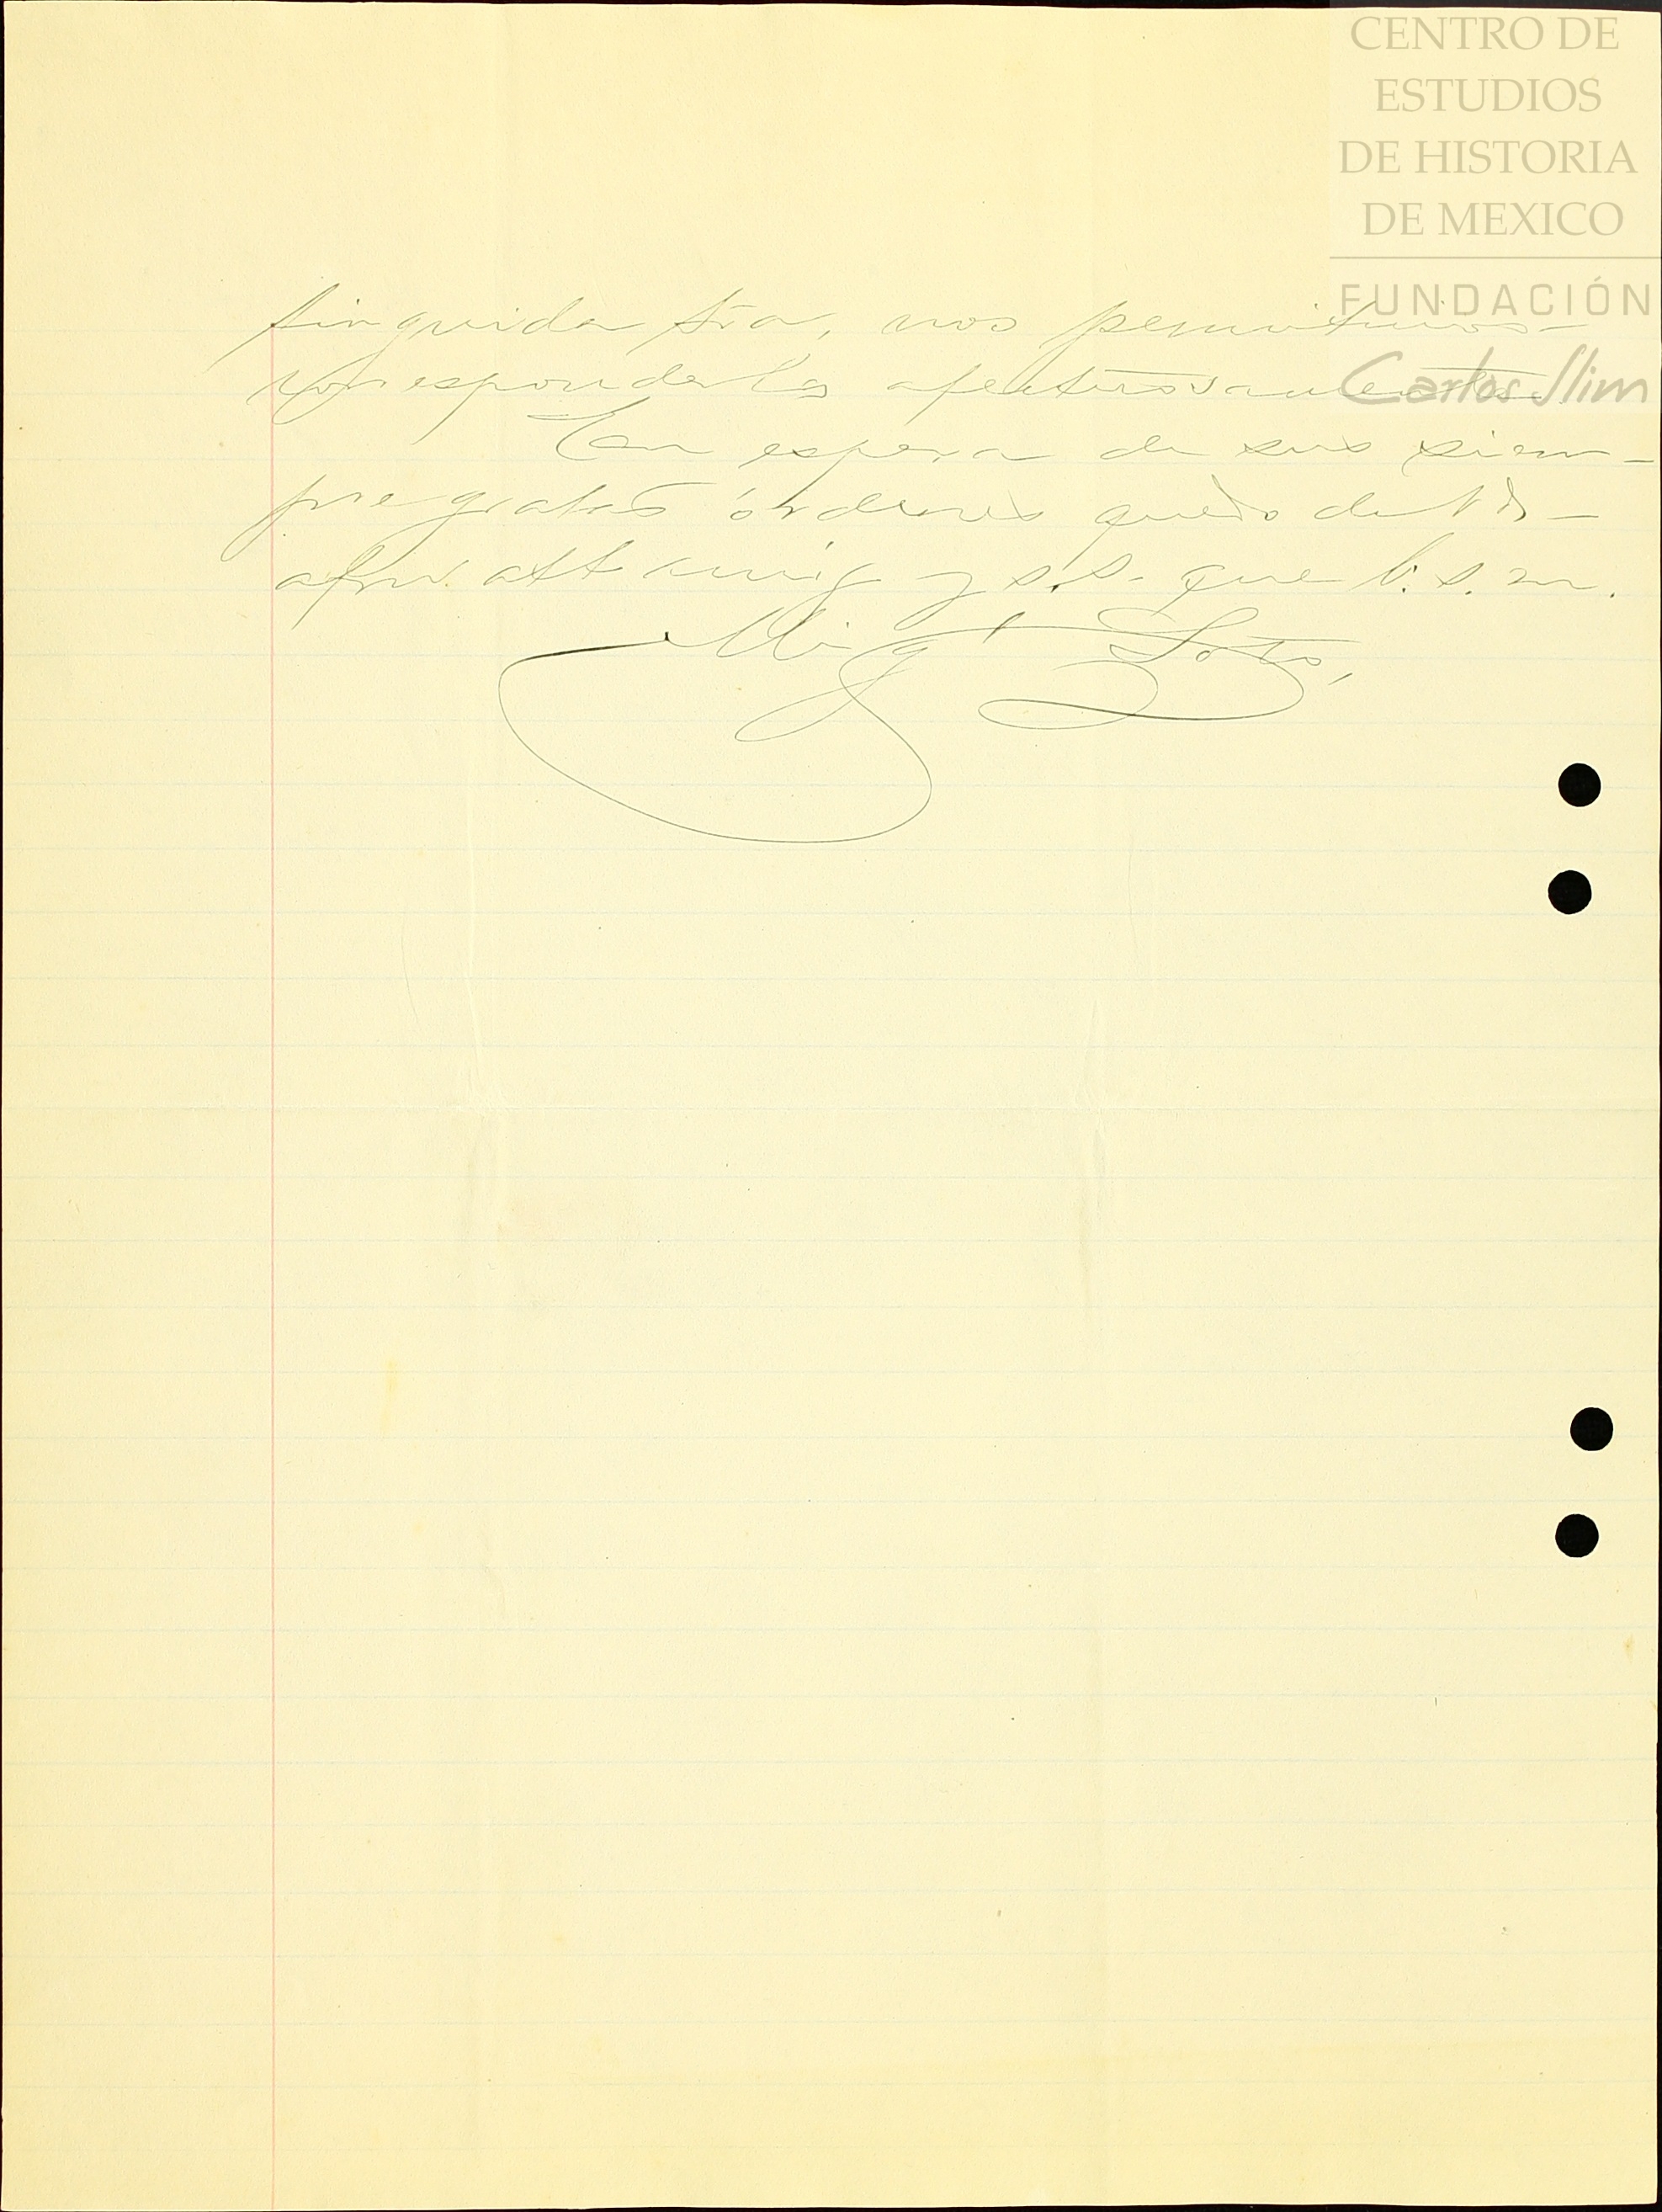 CENTRO DE
ESTUDIOS
DE HISTORIA
DE MEXICO
FUNDACIÓN
Carlos Slim
tinguida Sra, nos permitimos
corresponderlos afectuosamente.
En espera de sus siem-
pre gratas órdenes quedo de Vd-
afmo. att. amig y s.s. que b.s.m.
Migl Soto,